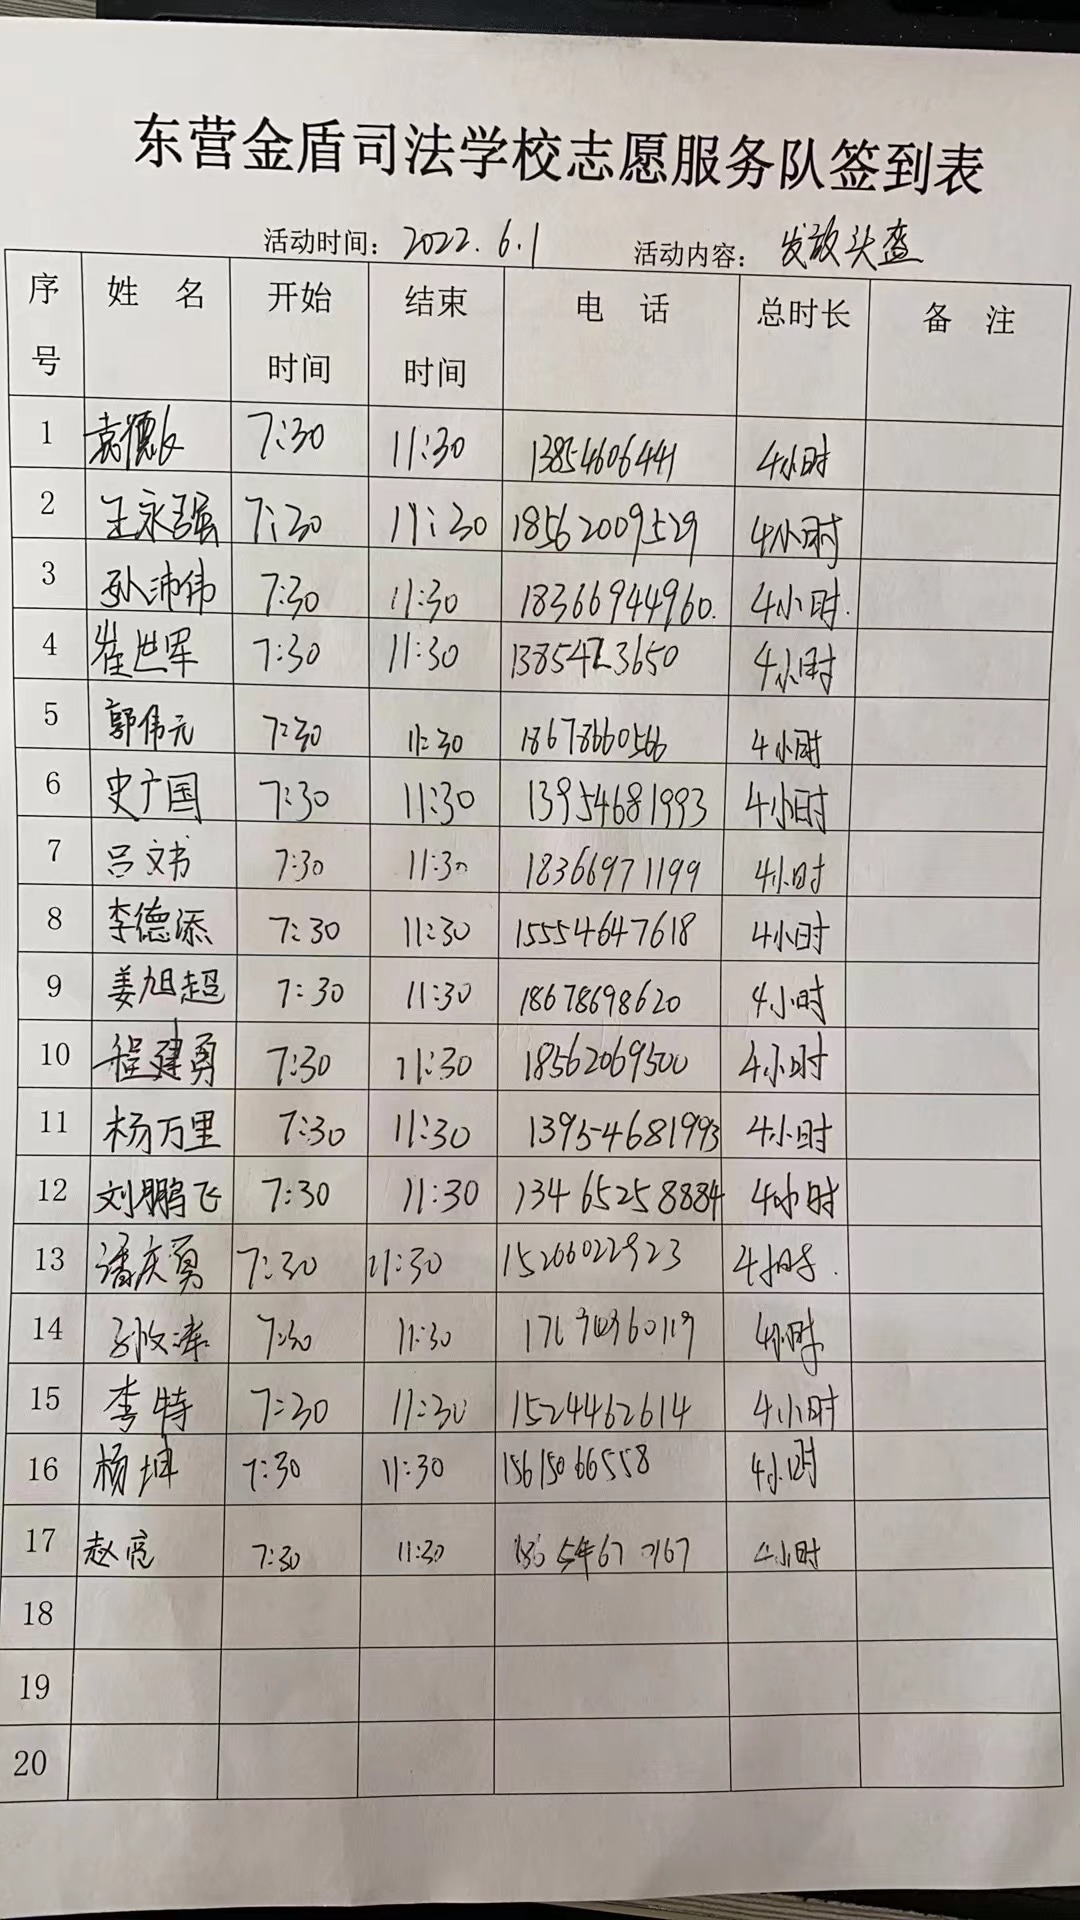 东营金盾司法学校志愿服务队签到表
活动时间：2022.6.1 活动内容：发放头盔
序号 姓 名 开始时间 结束时间 电 话 总时长 备 注
1 袁德 7:30 11:30 13854606441 4小时
2 王永强 7:30 11:30 18562009529 4小时
3 孙沛伟 7:30 11:30 18366944960. 4小时.
4 崔世军 7:30 11:30 4小时
5 郭伟元 7:30 11:30 18678660566 4小时
6 史广国 7:30 11:30 13954681993 4小时
7 吕文书 7:30 11:30 18366971199 4小时
8 李德添 7:30 11:30 15554647618 4小时
9 姜旭超 7:30 11:30 18678698620 4小时
10 程建勇 7:30 11:30 18562069500 4小时
11 杨万里 7:30 11:30 13954681993 4小时
12 刘鹏飞 7:30 11:30 13465258884 4小时
13 潘庆勇 7:30 11:30 15266022923 4小时.
14 7:30 11:30 4小时
15 李特 7:30 11:30 1524462614 4小时
16 杨坤 7:30 11:30 15615066558 4小时
17 赵亮 7:30 11:30 4小时
18
19
20